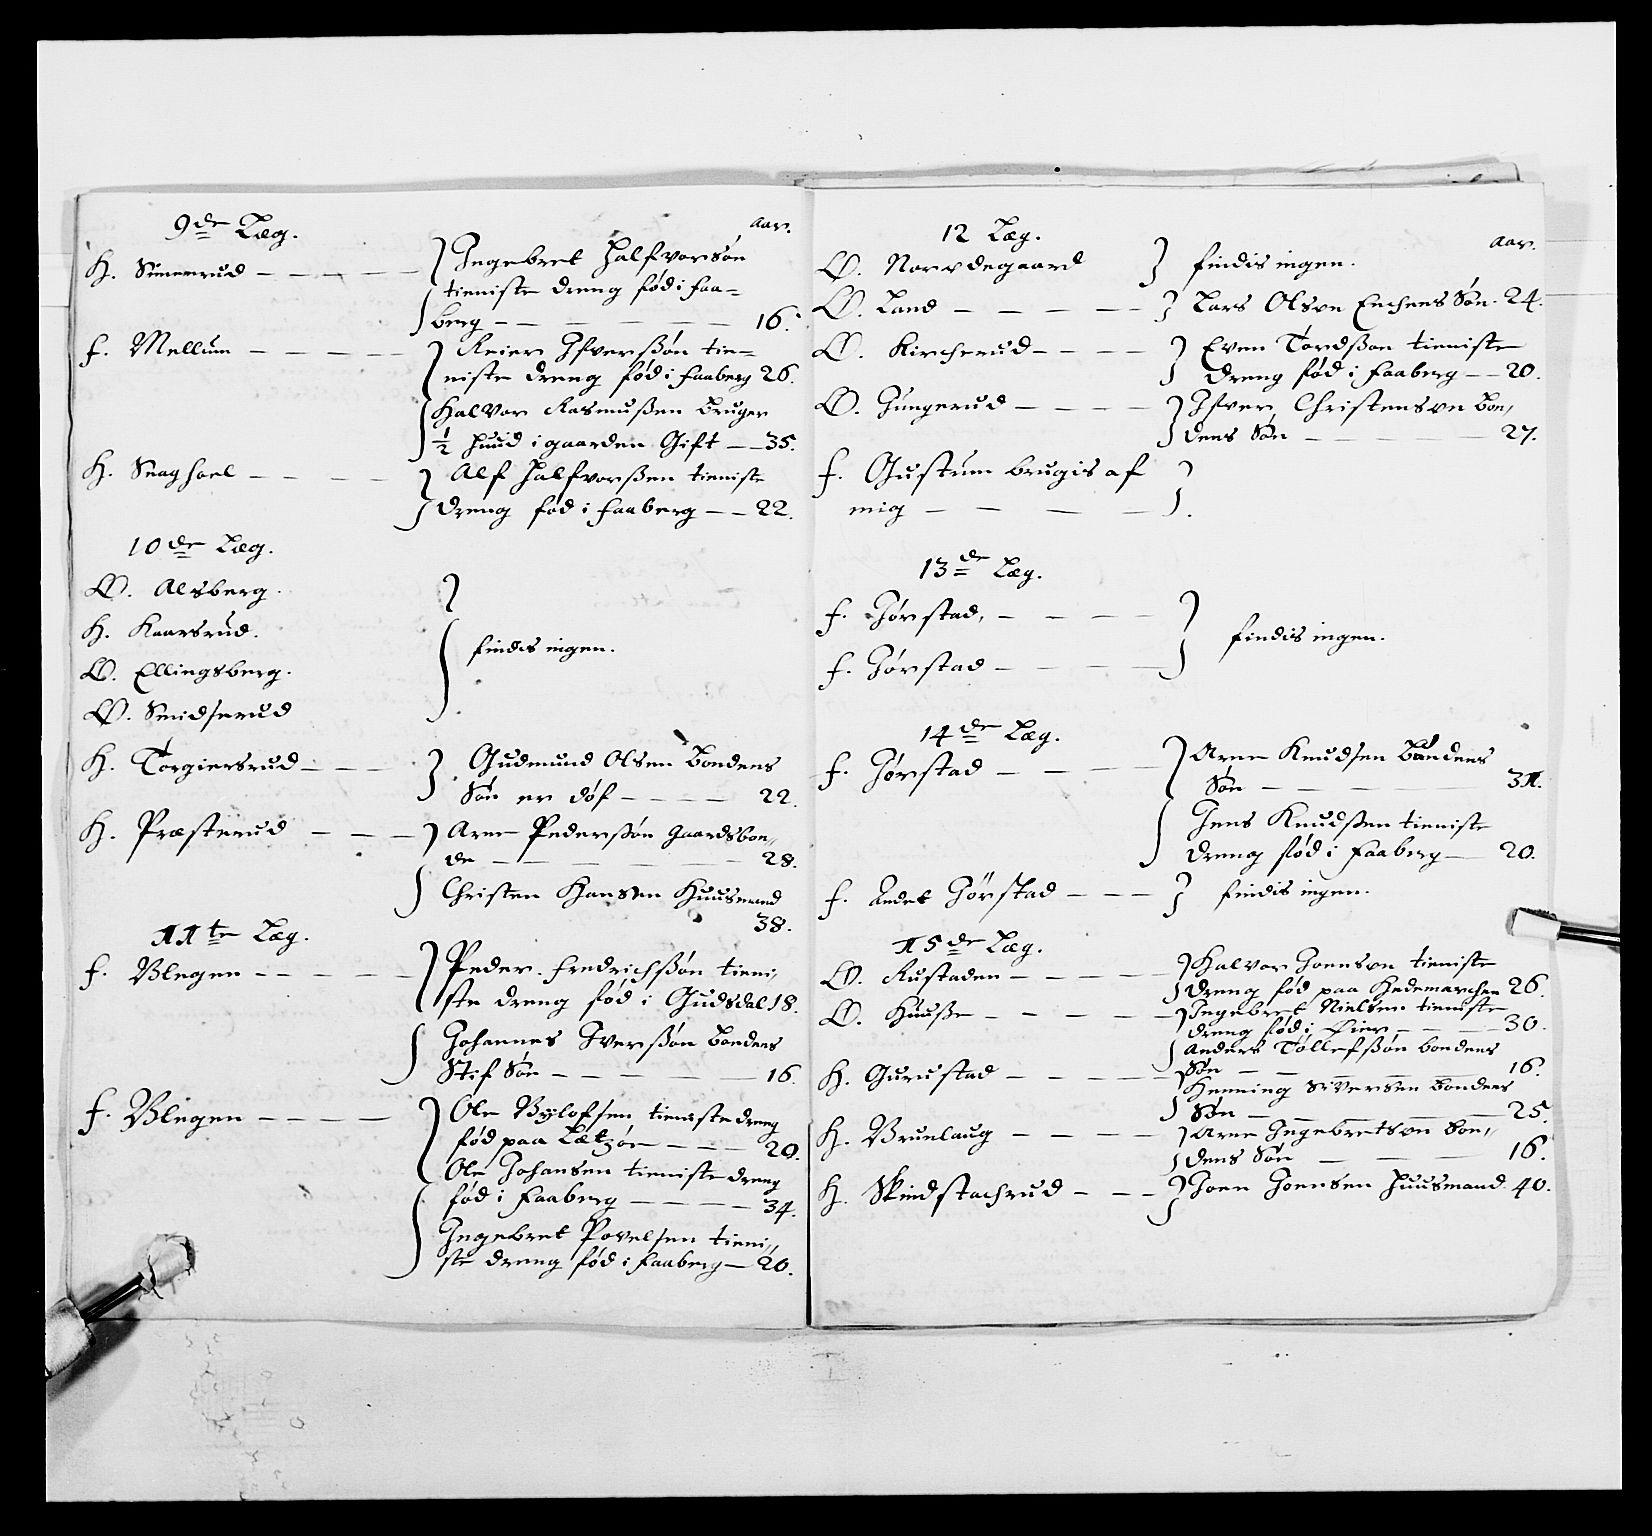 9de Læg.
aar.
H. Simenrud — — — —
Ingebret Halfvorsøn
tieniste dreng fød i faa=
berg — — — — — 16.
f. Mellum — — — —
Reier Ifverßøn tie=
niste dreng fød i faaberg 26.
Halvor Rasmußen bruger
1/2 huud i gaarden Gift — 35.
H. — — — —
Alf Halfvorßen tieniste
dreng fød i faaberg — — 22.
10de Læg.
Ø. Alsberg.
H. Kaarsrud.
Ø. Ellingsberg.
Ø. Smidserud
findis ingen.
H. Torgiersrud — — —
Gudmund Olsen bondens
Søn er døf — — — — 22.
H. Præsterud — — —
Arne Pederßøn gaardsbon„
de — — — — — 28.
Christen Hansen Huusmand
38.
11te Læg.
f. Blegen — — — —
Peder Fredrichßøn tieni„
ste dreng fød i Gudsdal 18.
Johannes Iverßøn bondens
Stif Søn — — — — 16.
f. Blegen — — — —
Ole tieniste dreng
fød paa — — — 20.
Ole Johansen tieniste dreng
fød i Faaberg — — — — 34.
Ingebret Povelsen tieni„
ste dreng fød i Faaberg — 20.
12 Læg.
aar.
Ø. Nordegaard
findis ingen.
Ø. Land — — — —
Lars Olsen Enchens Søn. 24.
Ø. Kircherud — — — —
Even Tordßon tieniste
dreng fød i Faaberg — — 20.
Ø. Jungerud — — — —
Ifver Christensen bon„
dens Søn — — — — 27.
f. Gustum brugis af
mig — — — —
13de Læg.
f. Jørstad, — — — —
f. Jørstad — — — —
findis ingen.
14de Læg.
f. Jørstad — — — —
Arne Knudsen bondens
Søn — — — — 31.
Jens Knudßen tieniste
dreng fød i Faaberg — 20.
f. Andet Jørstad — — —
findis ingen.
15de Læg.
Ø. Rustaden — — — —
Halvor Joensen tieniste
dreng fød paa Hedemarchen 26.
Ø. Huuße — — — —
Ingebret Nielsen tieniste
dreng fød i — — — 30.
Anders Tollefßøn bondens
Søn — — — — 16.
H. Gurustad — — — —
Henning Siversen bondens
Søn — — — — 25.
H. Bruelaug — — — —
Arne Ingebretsen bon„
dens Søn — — — 16.
H. Skindstachrud — — —
Joen Joensen Huusmand. 40.